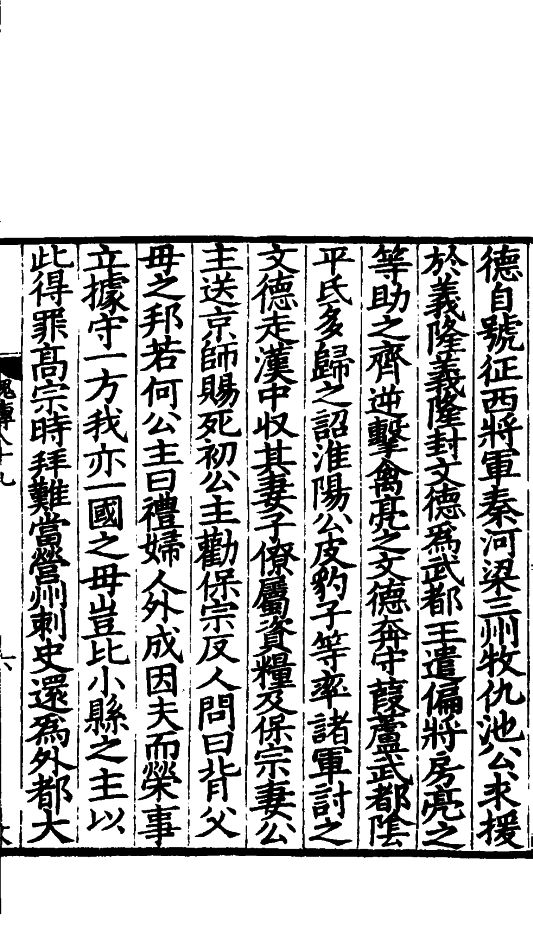 德自號征西將軍秦河梁三州牧仇池公求援
於義隆義隆封文德爲武都王遣偏將房亮之
等助之齊逆擊禽亮之文德奔守葭蘆武都陰
平氐多歸之詔淮陽公皮豹子等率諸軍討之
文德走漢中收其妻子僚屬資糧及保宗妻公
主送京師賜死初公主勸保宗反人問曰背父
母之邦若何公主曰禮婦人外成因夫而榮事
立據守一方我亦一國之母豈比小縣之主以
此得罪高宗時拜難當營州刺史還爲外都大